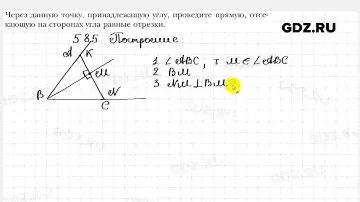 Через данную точку, принадлежащую углу, проведите прямую, отсе-
кающую на сторонах угла равные отрезки.
GDZ.RU
585 Построение:
A K
1 ∠ABC, т M ∈ ∠ABC
M
2 BM
B
N
3 NM ⊥ BM
C
GDZ.RU